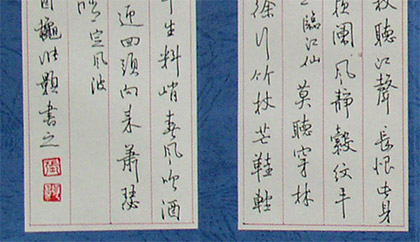 杖聽江聲 長恨此身
闌風靜縠紋平
臨江仙 莫聽穿林
徐行竹杖芒鞋輕
生料峭春風吹酒
迎回頭向來蕭瑟
晴定風波
書之